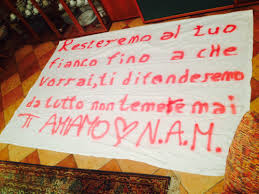 Resteremo al tuo
fianco fino a che
Vorrai, ti difenderemo
da tutto non temere mai
TI AMIAMO♡N.A.M.